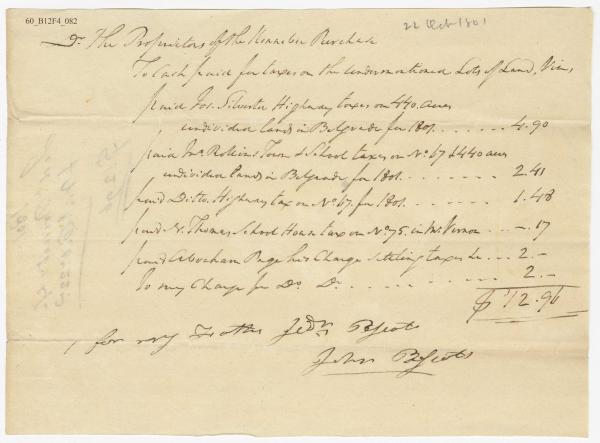 60_B12F4_082
22 Oct 1801
Dr. The Proprietors of the Kennebec Purchase
To Cash paid for taxes on the undermentioned Lots of Land, Viz,
paid Jos. Silvester Highway taxes on 440. acres
undivided lands in Belgrade for 1801. . . . . . . 4.90
paid Jno. Robins Town & School taxes on No. 67 & 440 acres
undivided lands in Belgrade for 1801. . . . . . . 2.41
paid Ditto. Highway tax on No. 67. for 1801. . . . . . . 1.48
paid N. Thomas School House tax on No. 75. in Mt. Vernon . . . -. 17
paid Abraham Page his Charge settling taxes &c . . . 2.-
To my Charge for Do. Do. . . . . . . . . . 2.-
$ 12.96
for my Father Jedh.
John